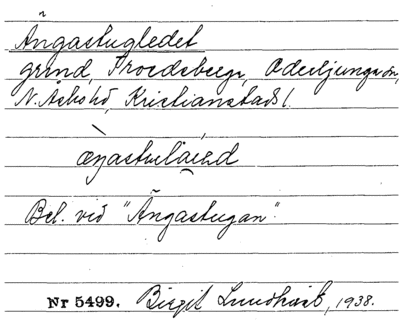 Ängastugledet
grind, Troedsberga, Oderljunga sn,
N. Åsbo hd, Kristianstads l.
Bel. vid "Ängastugan".
Nr 5499. Birgit Lundkvist, 1938.